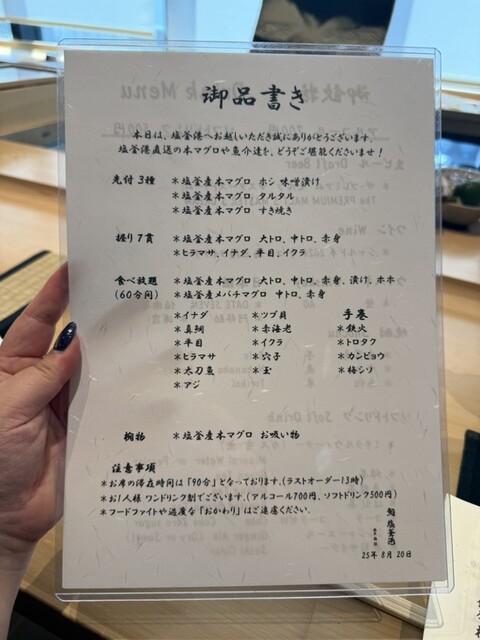 御品書き
本日は、塩釜港へお越しいただき誠にありがとうございます。
塩釜港直送の本マグロや魚介達を、どうぞご堪能くださいませ！
先付3種 ＊塩釜産本マグロ ホシ 味噌漬け
＊塩釜産本マグロ タルタル
＊塩釜産本マグロ すき焼き
握り7貫 ＊塩釜産本マグロ 大トロ、中トロ、赤身
＊ヒラマサ、イナダ、平目、イクラ
食べ放題 ＊塩釜産本マグロ 大トロ、中トロ、赤身、漬け、ホホ
(60分間) ＊塩釜産メバチマグロ 中トロ、赤身
＊イナダ ＊ツブ貝 手巻
＊真鯛 ＊赤海老 ＊鉄火
＊平目 ＊イクラ ＊トロタク
＊ヒラマサ ＊穴子 ＊カンピョウ
＊太刀魚 ＊玉 ＊梅シソ
＊アジ
椀物 ＊塩釜産本マグロ お吸い物
注意事項
＊お席の滞在時間は「90分」となっております。(ラストオーダー13時)
＊お1人様 ワンドリンク制でございます。(アルコール700円、ソフトドリンク500円)
＊フードファイトや過度な「おかわり」はご遠慮ください。
鮨 塩釜港
25年8月20日